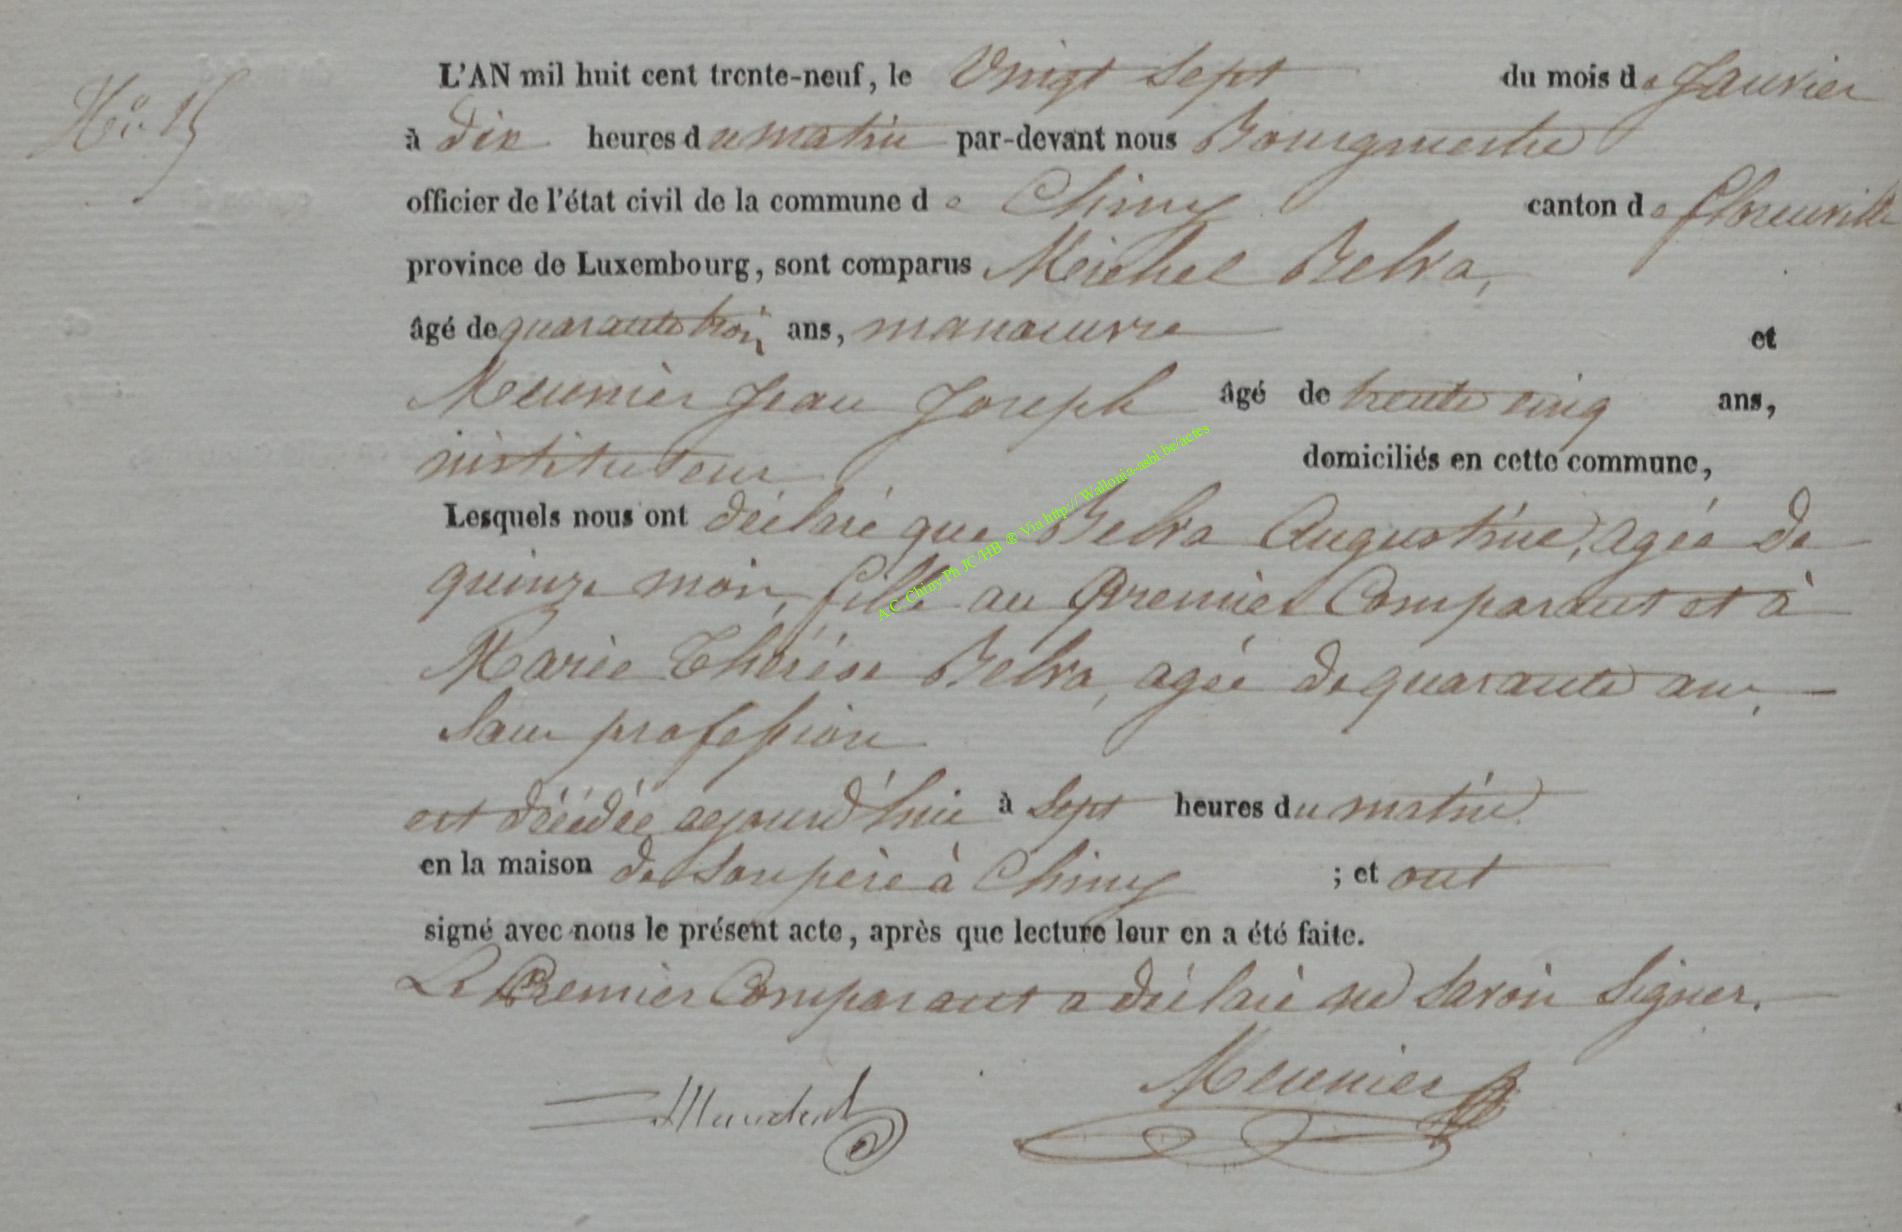 No. 15
L'AN mil huit cent trente-neuf, le Vingt Sept du mois de Janvier
à dix heures du matin par-devant nous Bourgmestre
officier de l'état civil de la commune de Chiny canton de florenville
province de Luxembourg, sont comparus Michel Belva,
âgé de quarante trois ans, manoeuvre et
Meunier Jean Joseph âgé de trente cinq ans,
instituteur domiciliés en cette commune,
Lesquels nous ont déclaré que Belva Augustine, agée de
quinze mois, fille au Premier Comparant et à
Marie Thérèse Belva, agée de quarante ans,
Sans profession
est décédée aujourd'hui à Sept heures du matin
en la maison de Son père à Chiny ; et ont
signé avec nous le présent acte, après que lecture leur en a été faite.
Le Premier Comparant a déclaré ne Savoir Signer.
Meunier
A C Chiny Ph JC/HB ® Via http://Wallonia-asbl be/actes